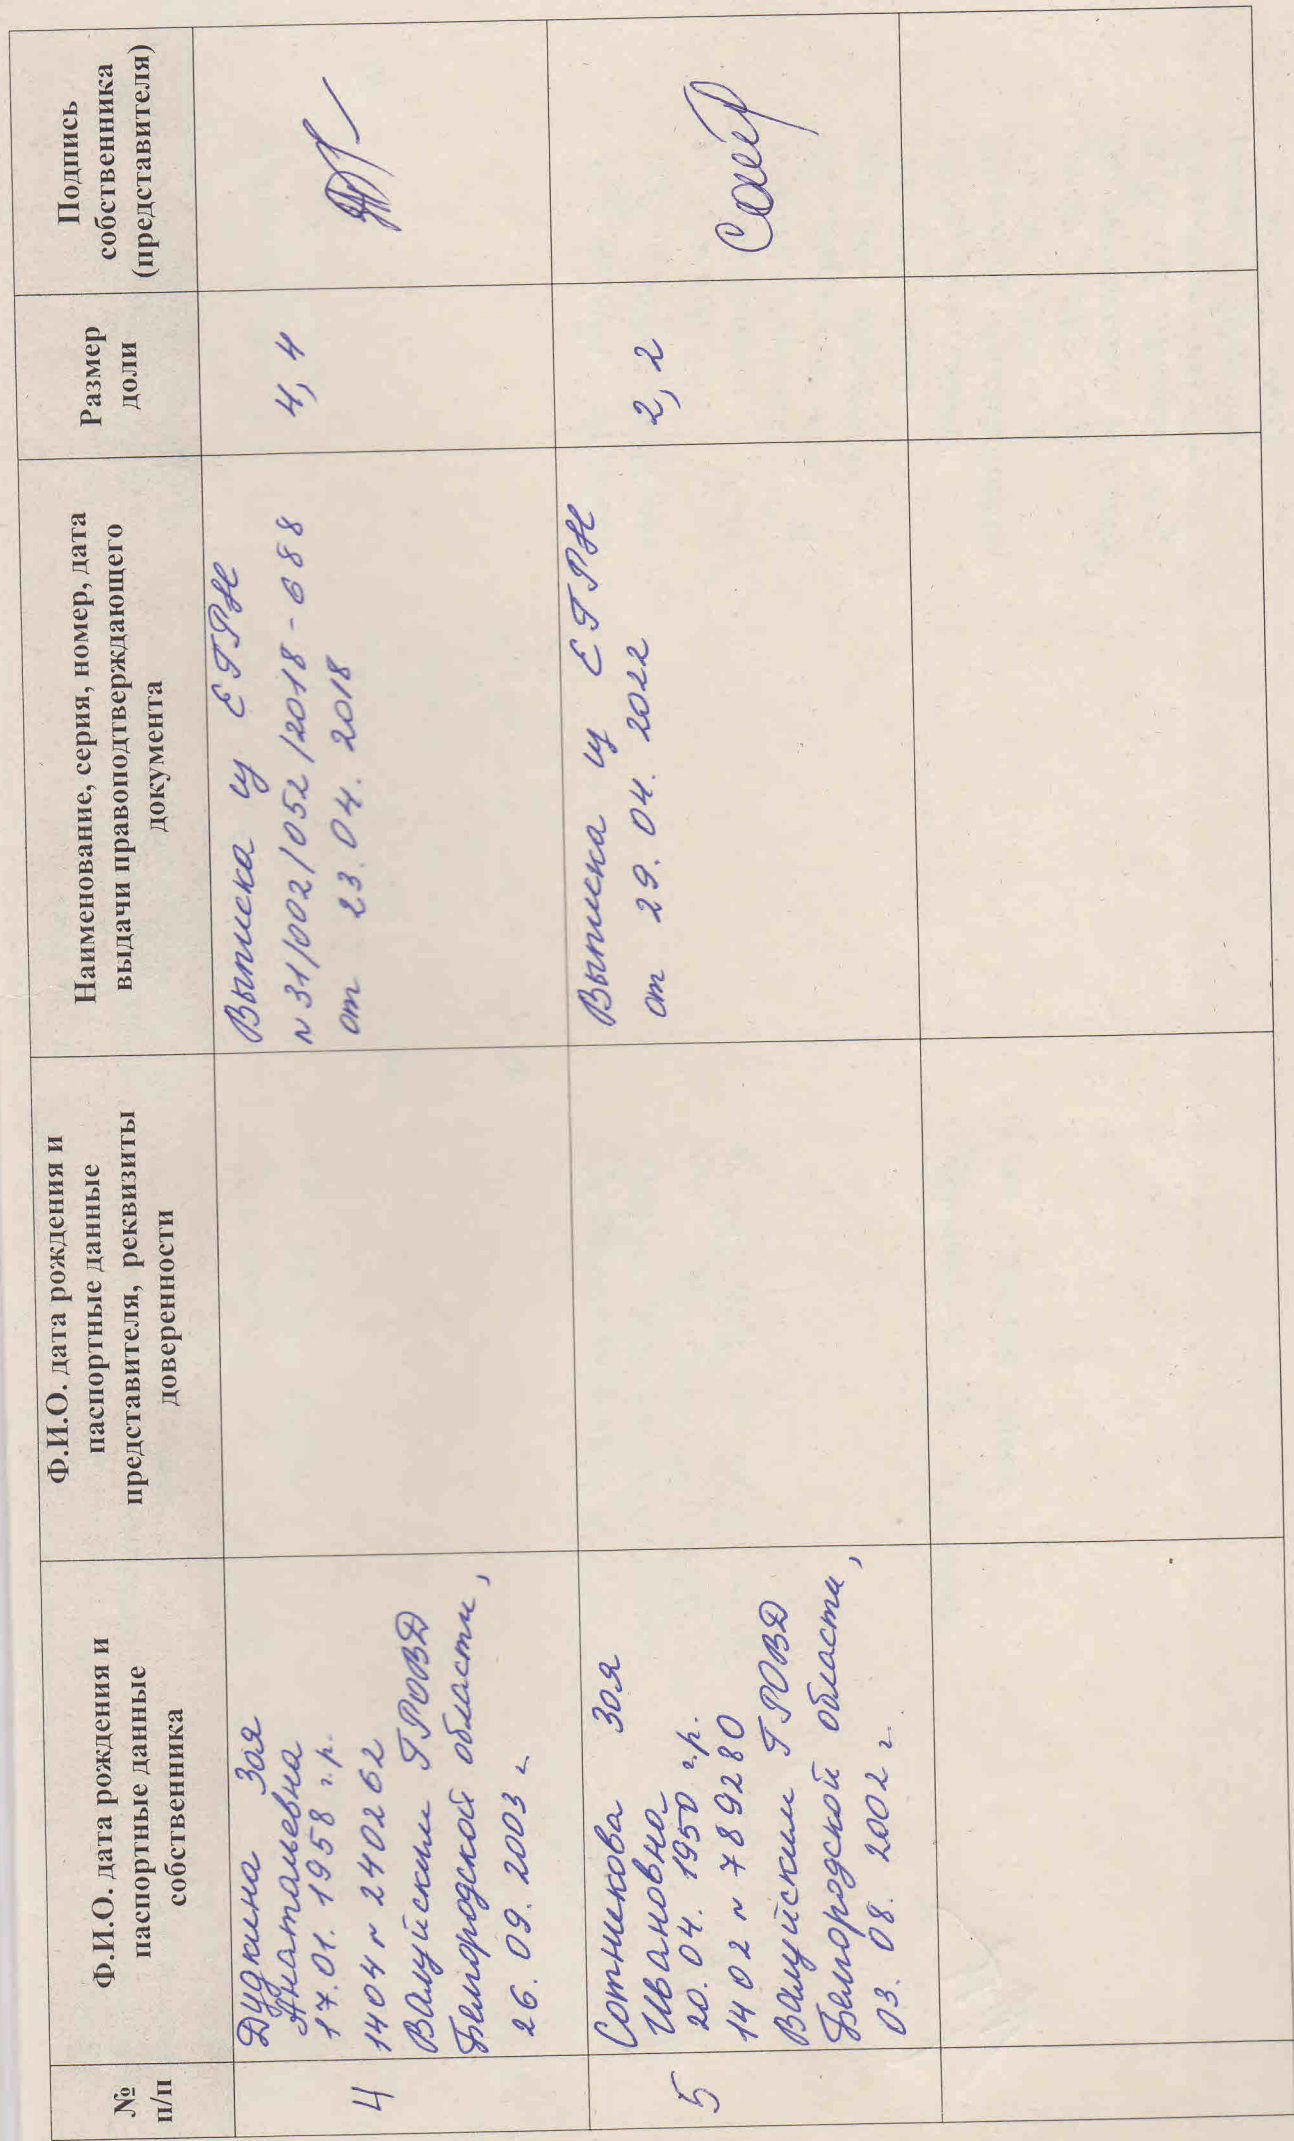 №
п/п
Ф.И.О. дата рождения и
паспортные данные
собственника
Ф.И.О. дата рождения и
паспортные данные
представителя, реквизиты
доверенности
Наименование, серия, номер, дата
выдачи правоподтверждающего
документа
Размер
доли
Подпись
собственника
(представителя)
4
Дудкина Зоя
Анатольевна
17.01.1958 г.р.
1404 N 240262
Валуйским ГРОВД
Белгородской области,
26.09.2003 г
Выписка из ЕГРН
N 31/002/052/2018-688
от 23.04.2018
4,4
5
Сотникова Зоя
Ивановна
20.04.1950 г.р.
1402 N 789280
Валуйским ГРОВД
Белгородской области,
03.08.2002 г
Выписка из ЕГРН
от 29.04.2022
2,2